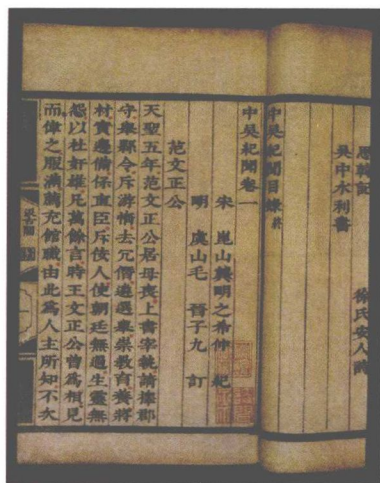 吳中水利書
徐氏安人詩
中吳紀聞目錄終
中吳紀聞卷一
宋 崑山龔明之希仲 紀
明 虞山毛 晉子九 訂
范文正公
天聖五年范文正公居母喪上書宰執請擇郡
守舉縣令斥游惰去冗僭遴選舉崇教育養將
材實邊備保直臣斥佞人使朝廷無過生靈無
怨以杜奸雄凡萬餘言時王文正公曾為相見
而偉之服滿薦充館職由此為人主所知不次